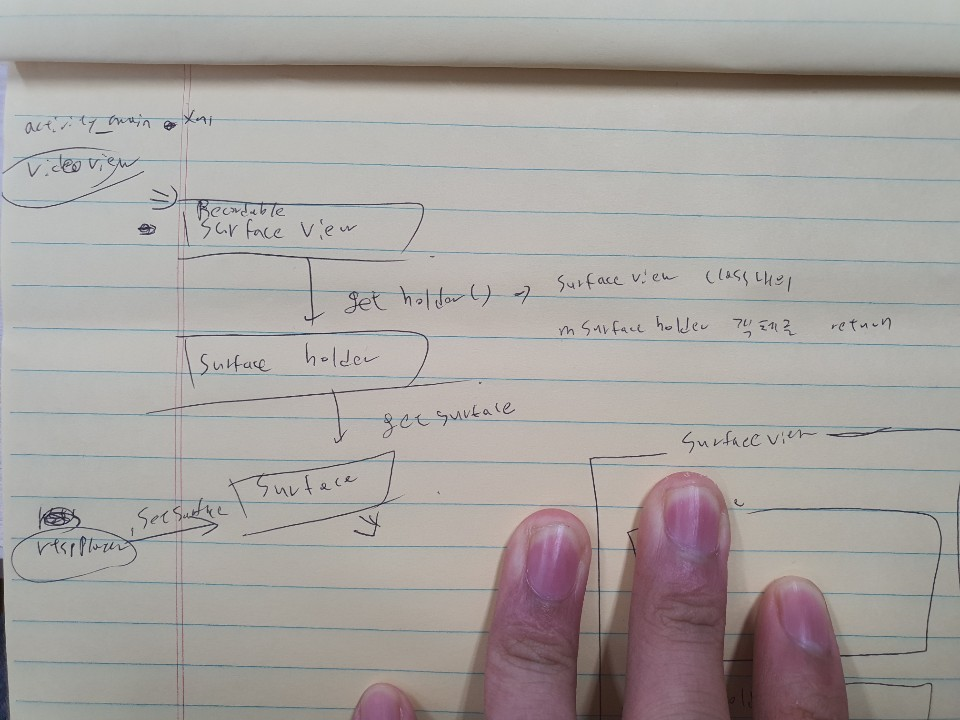 activity_main.xml
videoview
Recordable
Surface View
get holder() → Surface view class 내의
mSurface holder 객체로 return
Surface holder
get surface
Surface view
Surface
.SetSurface
rtspPlayer